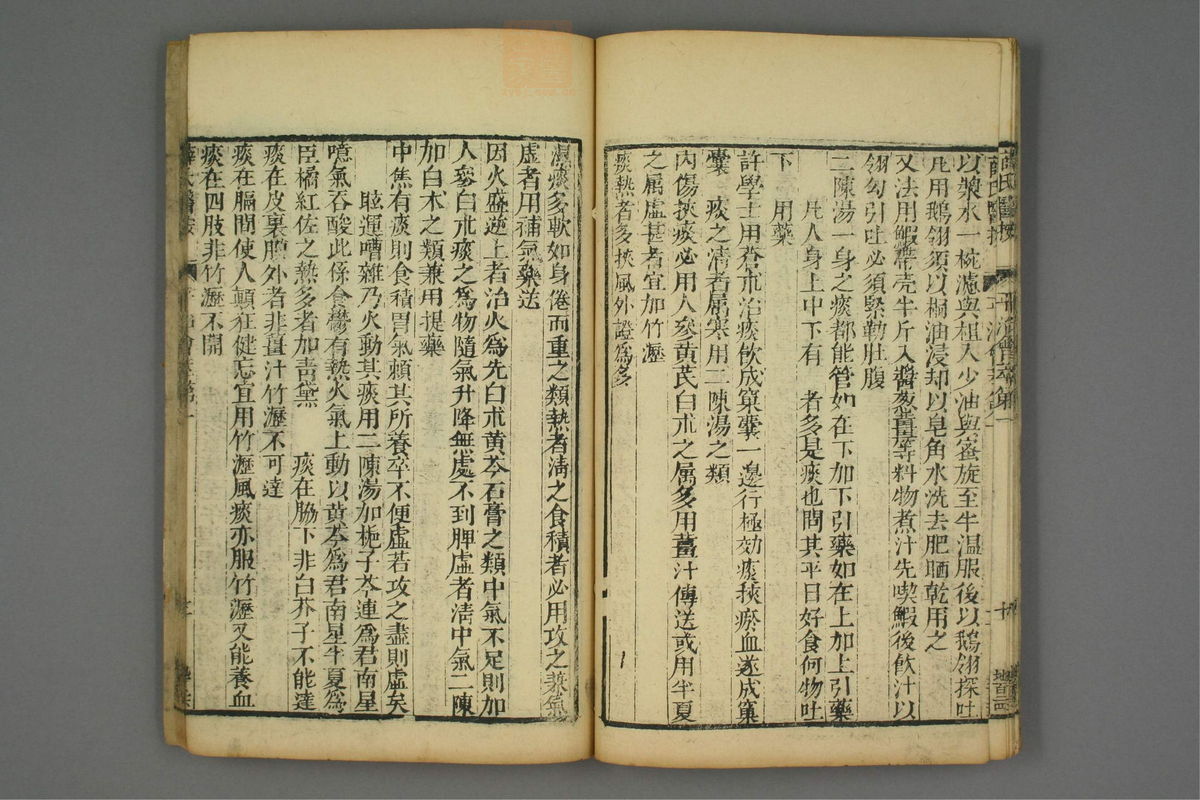 以漿水一椀濾與柤入少油與蜜旋至半温服後以鵝翎探吐
凡用鵝翎須以桐油浸却以皂角水洗去肥晒乾用之
又法用鰕帶壳半斤入醬葱薑等料物煮汁先喫鰕後飲汁以
翎勾引吐必須緊勒肚腹
二陳湯一身之痰都能管如在下加下引藥如在上加上引藥
凡人身上中下有 者多是痰也問其平日好食何物吐
下 用藥
許學士用蒼朮治痰飲成窠囊一邊行極効痰挾瘀血遂成窠
囊 痰之清者属寒用二陳湯之類
内傷挾痰必用人參黄芪白朮之属多用薑汁傳送或用半夏
之属虚甚者宜加竹瀝
痰熱者多挾風外證為多
濕痰多軟如身倦而重之類熱者清之食積者必用攻之兼氣
虚者用補氣藥送
因火盛逆上者治火為先白朮黄芩石膏之類中氣不足則加
人參白朮痰之為物隨氣升降無處不到脾虚者清中氣二陳
加白朮之類兼用提藥
中焦有痰則食積胃氣頼其所養卒不便虚若攻之盡則虚矣
眩運嘈雜乃火動其痰用二陳湯加梔子芩連為君南星
噫氣吞酸此係食鬱有熱火氣上動以黄芩為君南星半夏為
臣橘紅佐之熱多者加青黛 痰在脇下非白芥子不能達
痰在皮裏膜外者非薑汁竹瀝不可達
痰在膈間使人顛狂健忘宜用竹瀝風痰亦服竹瀝又能養血
痰在四肢非竹瀝不開